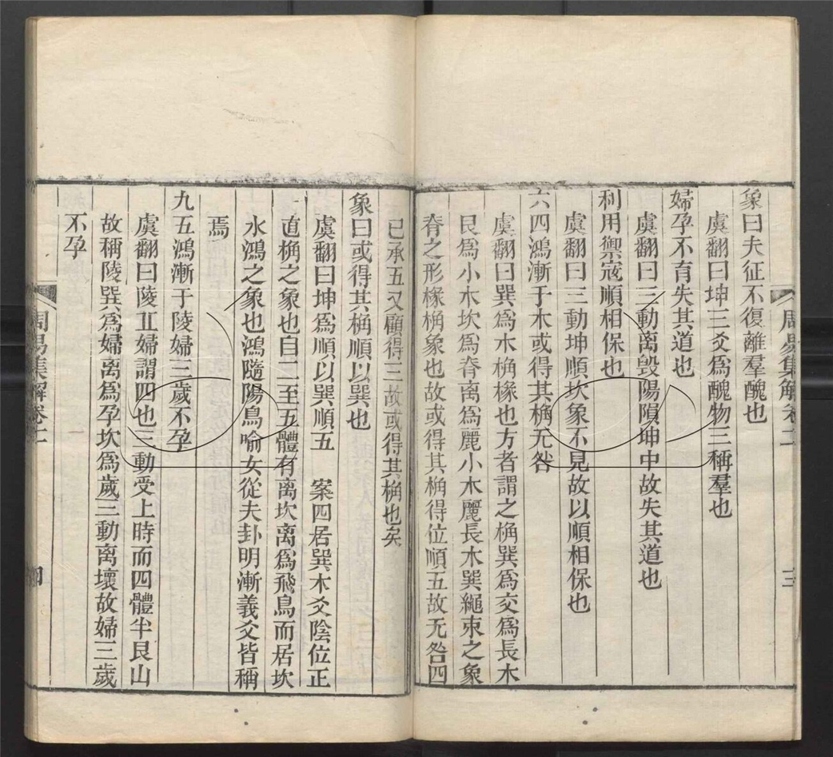 象曰夫征不復離羣醜也
虞翻曰坤三爻爲醜物三稱羣也
婦孕不育失其道也
虞翻曰三動离毀陽隕坤中故失其道也
利用禦寇順相保也
虞翻曰三動坤順坎象不見故以順相保也
六四鴻漸于木或得其桷无咎
虞翻曰巽爲木桷椽也方者謂之桷巽爲交爲長木
艮爲小木坎爲脊离爲麗小木麗長木巽繩束之象
脊之形椽桷象也故或得其桷得位順五故无咎四
已承五又顧得三故或得其桷也矣
象曰或得其桷順以巽也
虞翻曰坤爲順以巽順五 案四居巽木爻陰位正
直桷之象也自二至五體有离坎离爲飛鳥而居坎
水鴻之象也鴻隨陽鳥喻女從夫卦明漸義爻皆稱
焉
九五鴻漸于陵婦三歲不孕
虞翻曰陵丘婦謂四也三動受上時而四體半艮山
故稱陵巽爲婦离爲孕坎爲歲三動离壞故婦三歲
不孕
周易集解卷